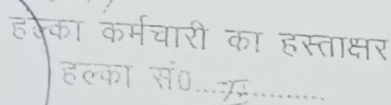 हल्का कर्मचारी का हस्ताक्षर
हल्का सं०...............